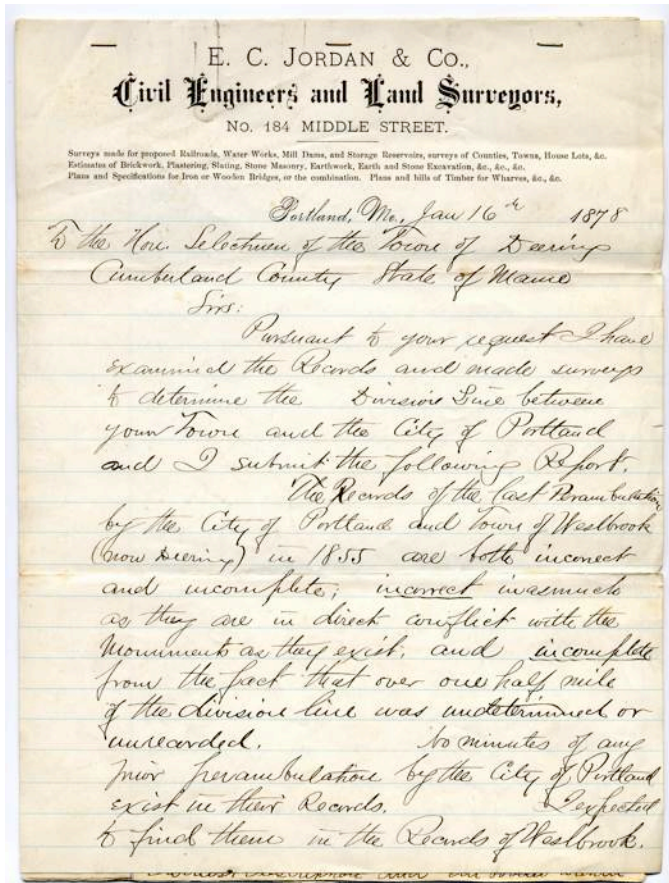 E. C. JORDAN & CO.,
Civil Engineers and Land Surveyors,
NO. 184 MIDDLE STREET.
Surveys made for proposed Railroads, Water Works, Mill Dams, and Storage Reservoirs, surveys of Counties, Towns, House Lots, &c.
Estimates of Brickwork, Plastering, Slating, Stone Masonry, Earthwork, Earth and Stone Excavation, &c., &c., &c.
Plans and Specifications for Iron or Wooden Bridges, or the combination. Plans and bills of Timber for Wharves, &c., &c.
Portland, Me., Jan 16th 1878
To the Hon. Selectmen of the Town of Deering
Cumberland County State of Maine
Sirs:
Pursuant to your request I have
examined the Records and made surveys
to determine the Division Line between
your Town and the City of Portland
and I submit the following Report.
The Records of the last Perambulation
by the City of Portland and Town of Westbrook
(now Deering) in 1855 are both incorrect
and incomplete; incorrect inasmuch
as they are in direct conflict with the
Monuments as they exist, and incomplete
from the fact that over one half mile
of the division line was undetermined or
unrecorded. No minutes of any
prior perambulation by the City of Portland
exist in their Records. I expected
to find them in the Records of Westbrook.